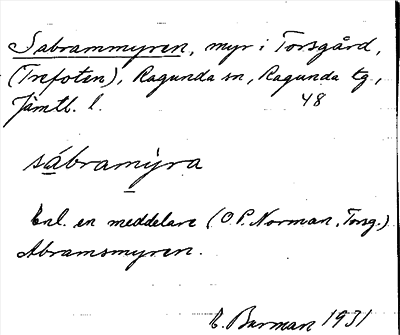 Sabrammyren, myr i Torsgård,
(Trefoten), Ragunda sn, Ragunda tg,
Jämtl. l. 48
sábramýra
Enl. en meddelare (O.P. Norman, Torsg.)
Abramsmyren.
Barman 1931